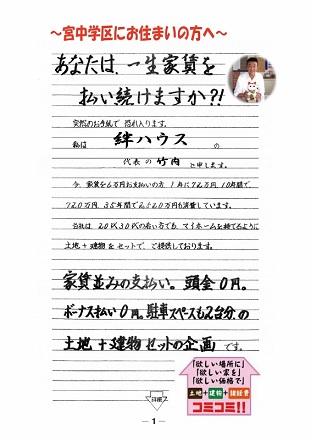 〜宮中学区にお住まいの方へ〜
あなたは、一生家賃を
払い続けますか?!
突然のお手紙で恐れ入ります。
私は 絆ハウス の
代表の竹内と申します。
今、家賃を6万円お支払いの方、1年に72万円、10年間で、
720万円、35年間で2,520万円も消費しています。
当社は、20代30代の若い方でも、マイホームを持てるように
土地+建物をセットで、ご提供しております。
家賃並みの支払い。頭金0円。
ボーナス払い0円。駐車スペースも2台分の
土地+建物セットの企画です。
「欲しい場所に」
「欲しい家を」
「欲しい価格で」
土地+建物+諸経費
コミコミ!!
－1－